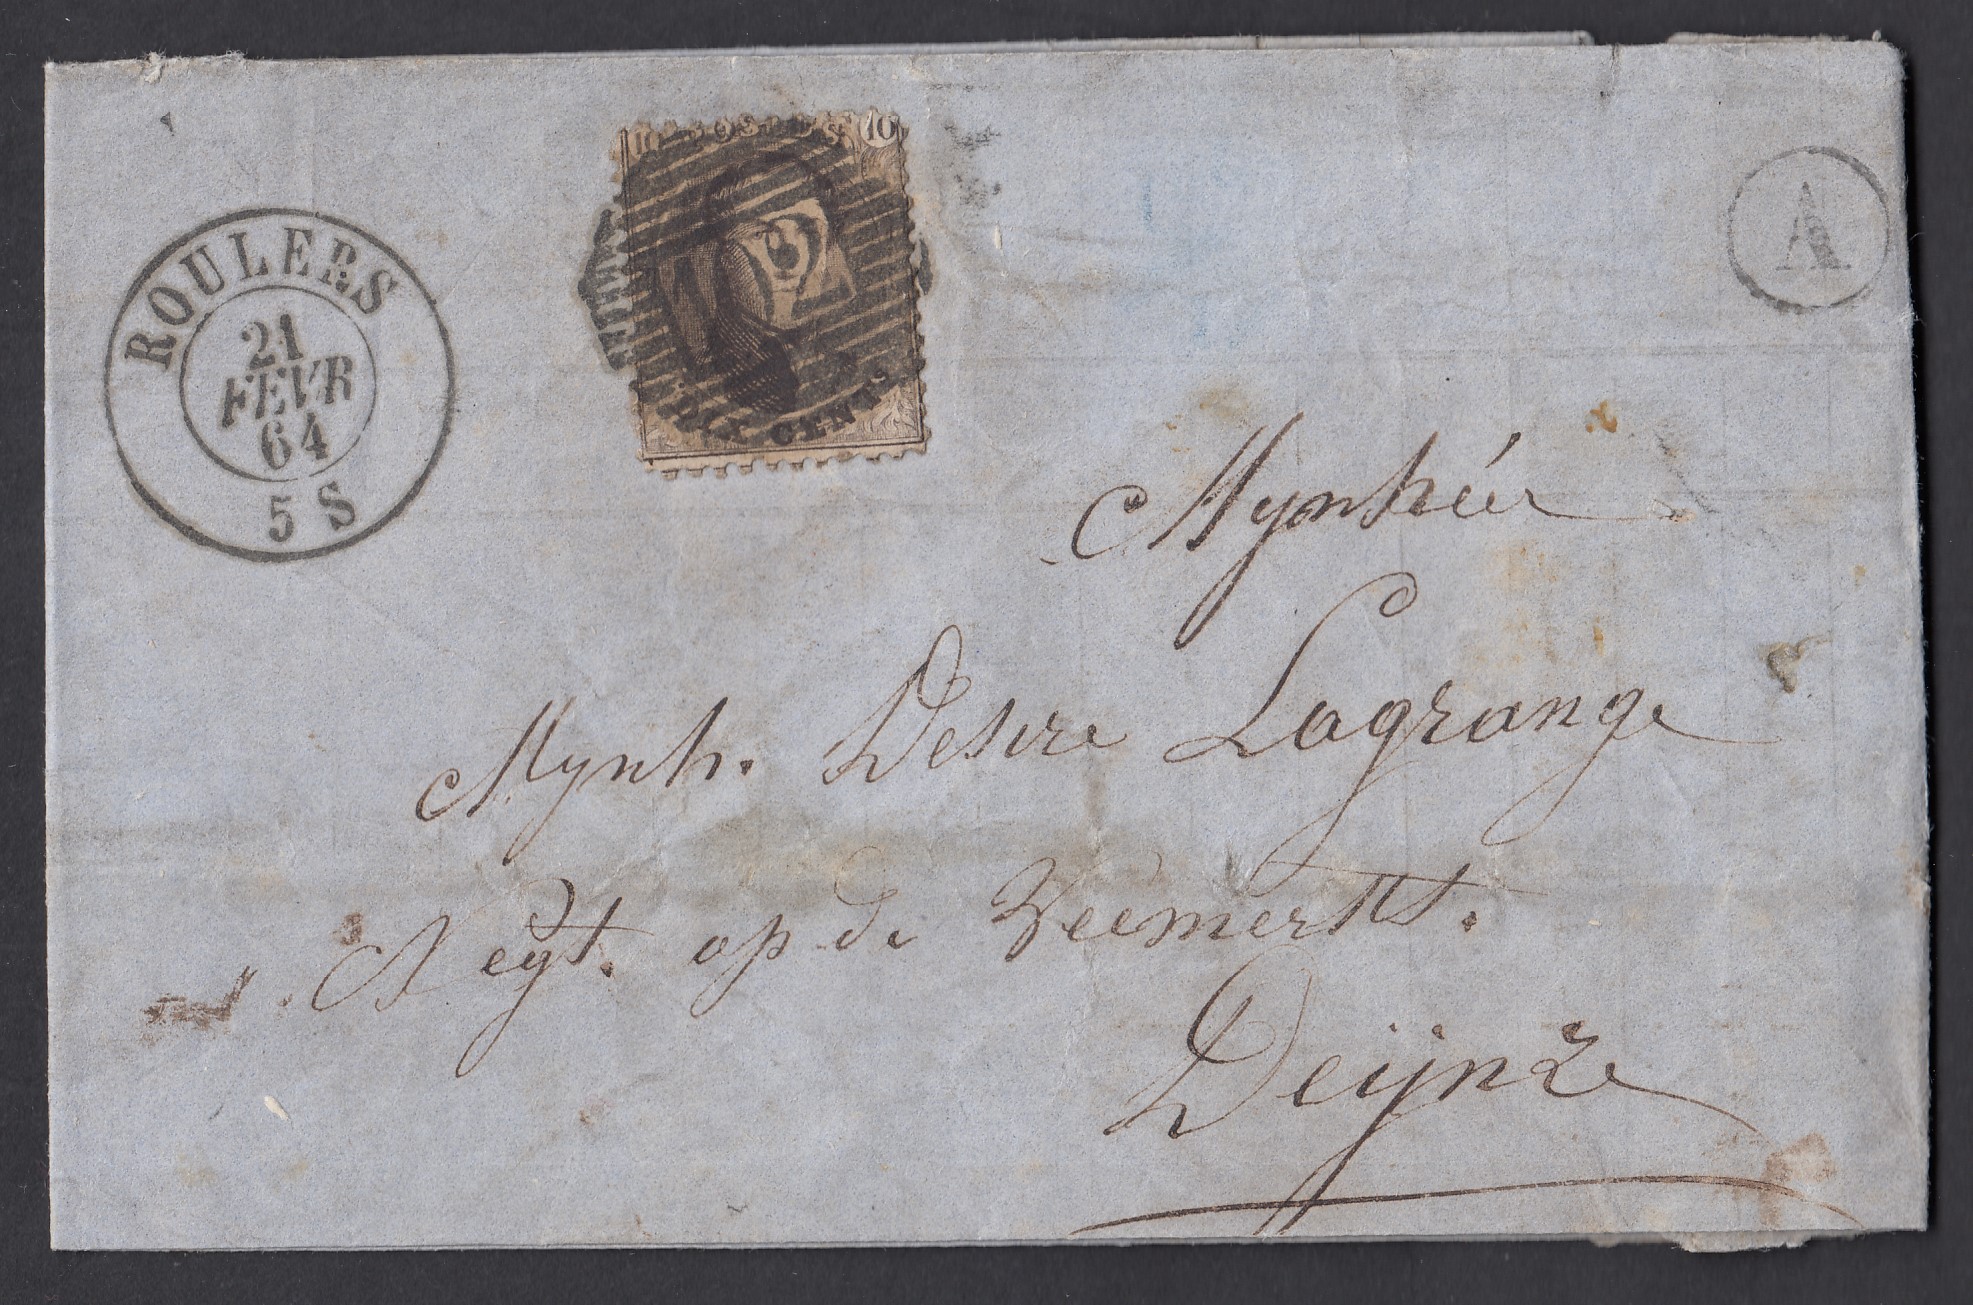 10 POSTES 10
DIX CENTS
A
ROULERS
21
FEVR
64
5 S
Mynhéer
Mynh. Desire Lagrange
Negt. op de Veemerkt.
Deijnze